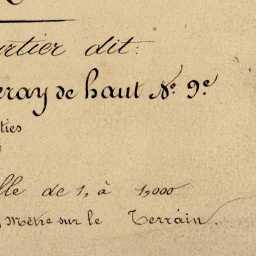 rtier dit:
eray de haut No. 9e
ties
lle de 1, à 1,000
Mètre sur le Terrain